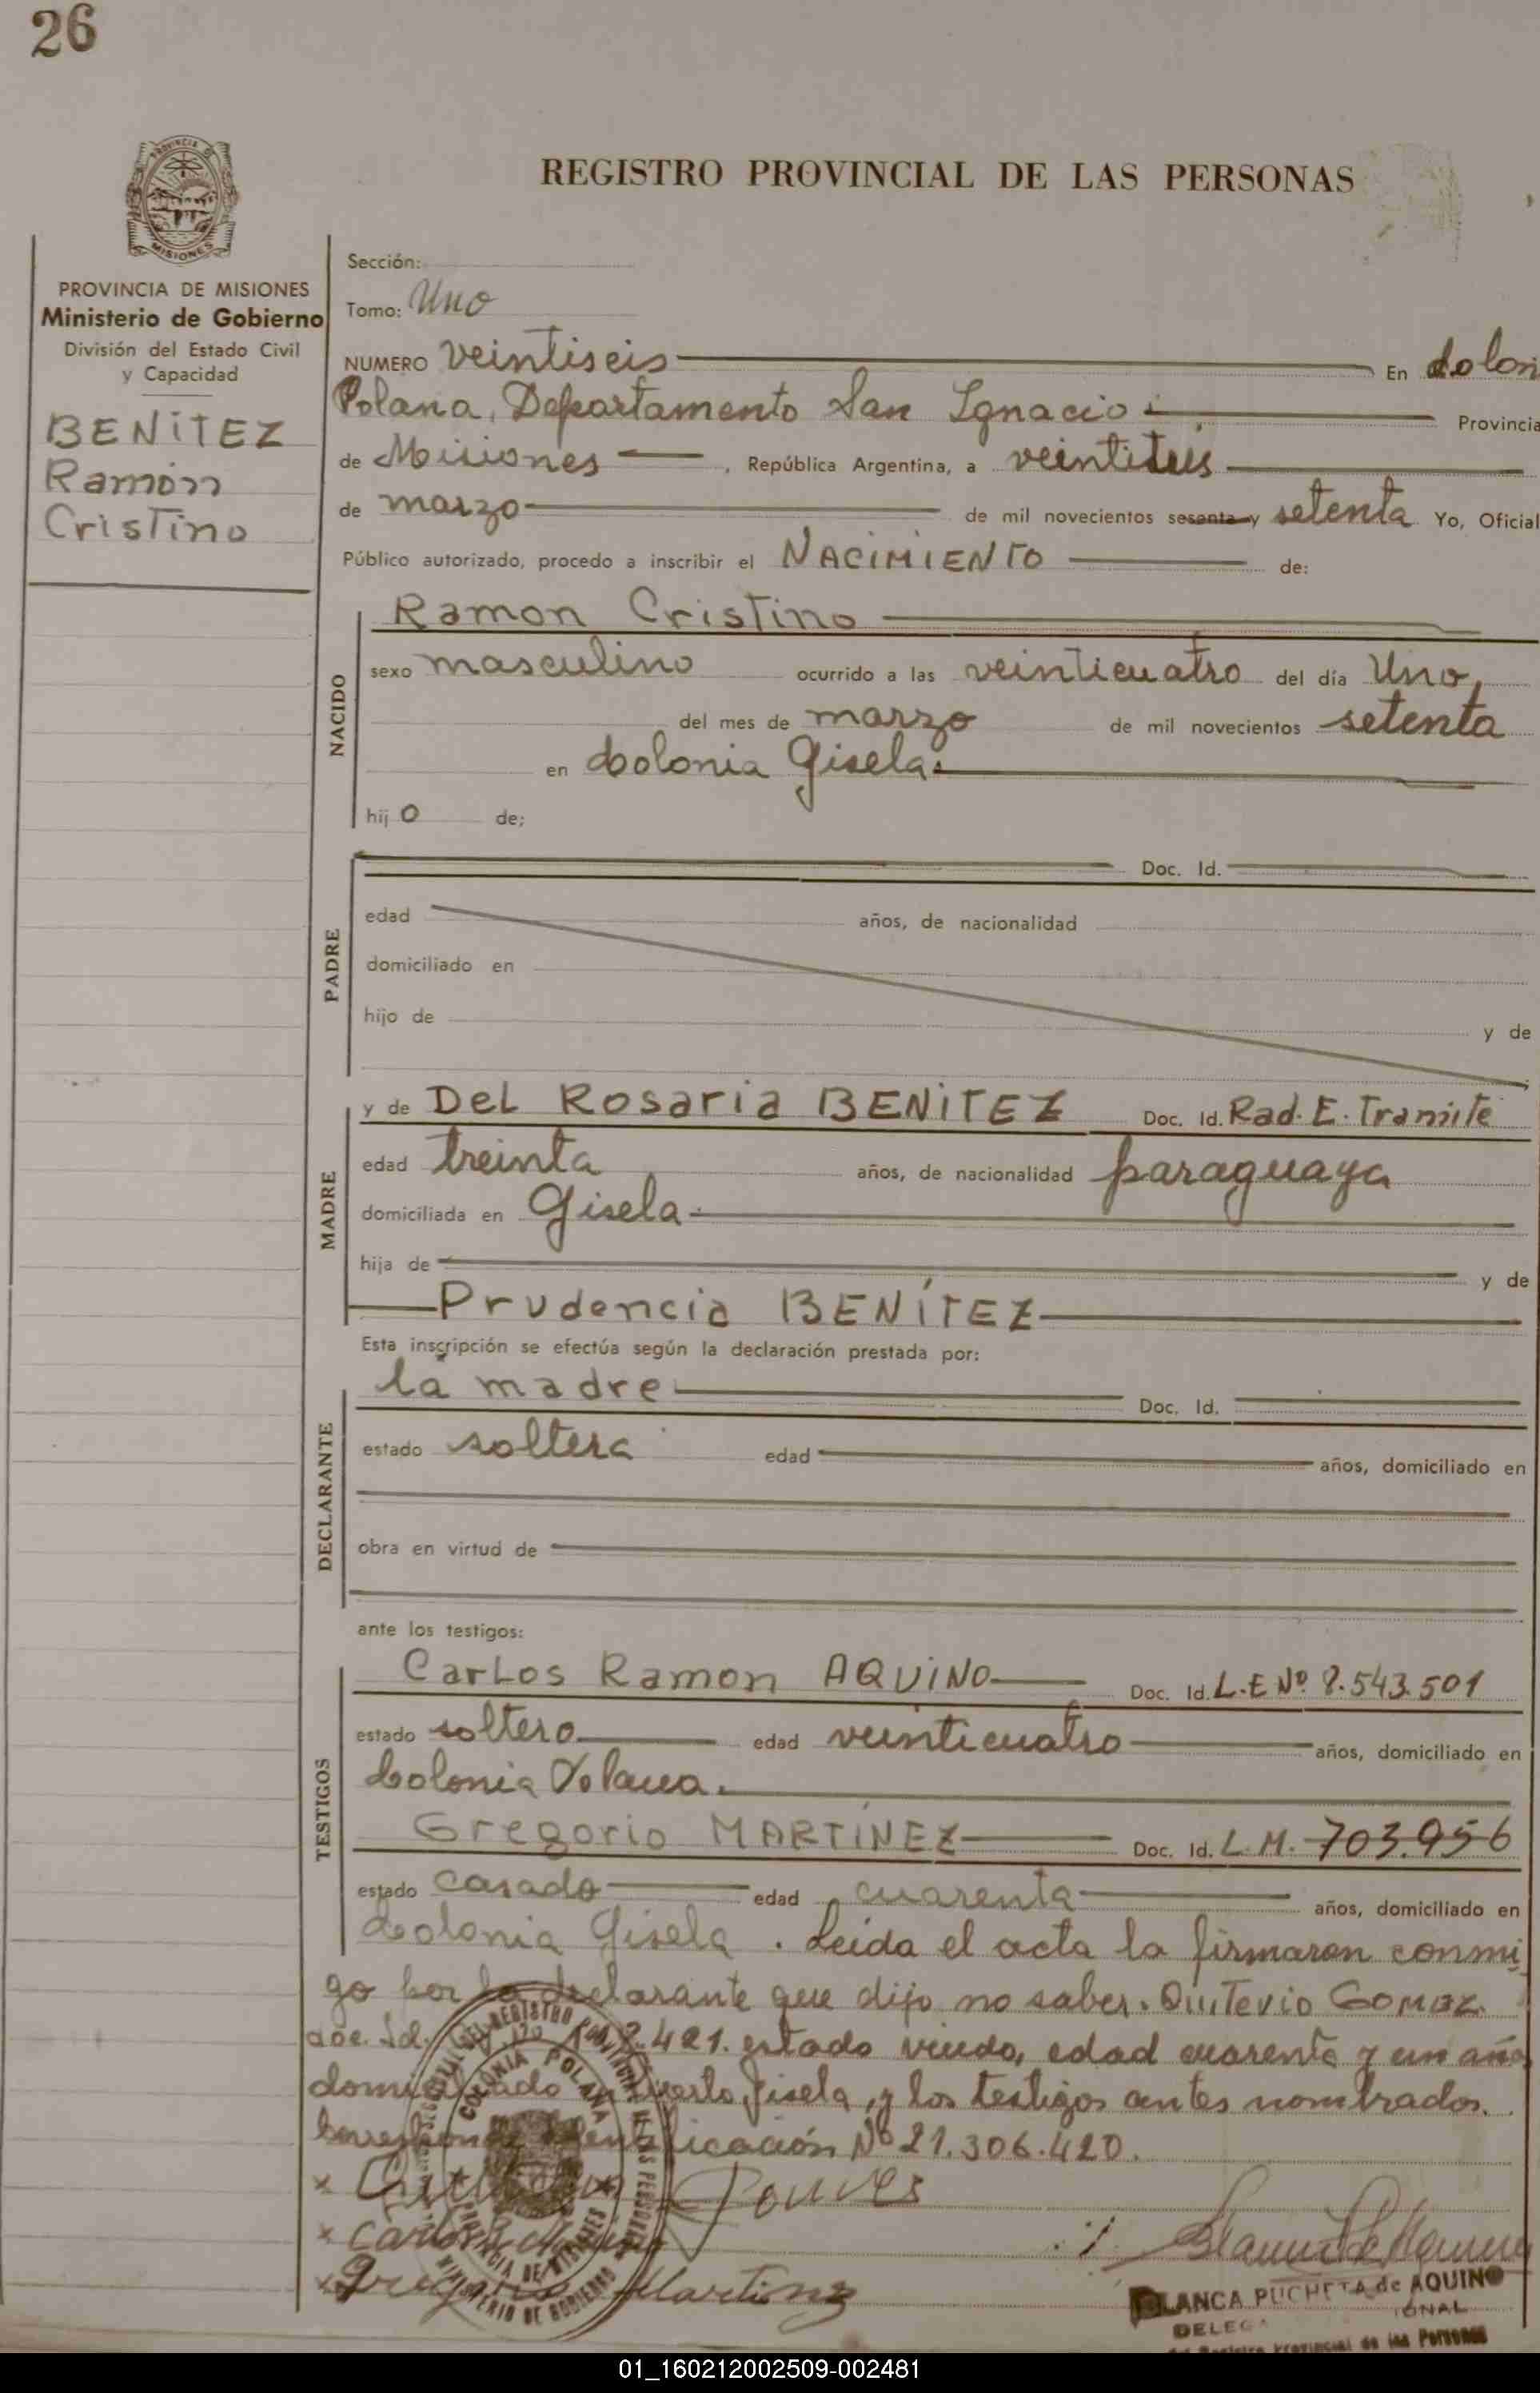 26
REGISTRO PROVINCIAL DE LAS PERSONAS
PROVINCIA DE MISIONES
Ministerio de Gobierno
División del Estado Civil
y Capacidad
BENITEZ
Ramón
Cristino
Sección:
Tomo: Uno
NUMERO veintiseis En Colon
Polana, Departamento San Ignacio Provincia
de Misiones, República Argentina, a veintitrés
de marzo de mil novecientos sesenta y setenta Yo, Oficial
Público autorizado, procedo a inscribir el NACIMIENTO de:
NACIDO
Ramon Cristino
sexo masculino ocurrido a las veinticuatro del día Uno,
del mes de marzo de mil novecientos setenta
en Colonia Gisela.
hijo de;
PADRE
Doc. Id.
edad años, de nacionalidad
domiciliado en
hijo de y de
MADRE
y de Del Rosaria BENITEZ Doc. Id. Rad. E. Tramite
edad treinta años, de nacionalidad paraguaya
domiciliada en Gisela
hija de y de
Prudencia BENÍTEZ
Esta inscripción se efectúa según la declaración prestada por:
DECLARANTE
la madre Doc. Id.
estado soltera edad años, domiciliado en
obra en virtud de
ante los testigos:
TESTIGOS
Carlos Ramon AQUINO Doc. Id. L.E Nº 8.543.501
estado soltero edad veinticuatro años, domiciliado en
Colonia Polana.
Gregorio MARTINEZ Doc. Id. L.M. 703.956
estado casado edad cuarenta años, domiciliado en
Colonia Gisela. Leida el acta la firmaron conmi
go por la declarante que dijo no saber. GOMEZ
doc. Id. 421. estado viudo, edad cuarenta y un año
domiciliado en Puerto Gisela, y los testigos antes nombrados.
Identificación Nº 21.306.420.
COLONIA POLANA
PROVINCIA DE MISIONES
MINISTERIO DE GOBIERNO
Gregorio Martinez
BLANCA PUCHETA de AQUINO
del Registro Provincial de las Personas
01_160212002509-002481